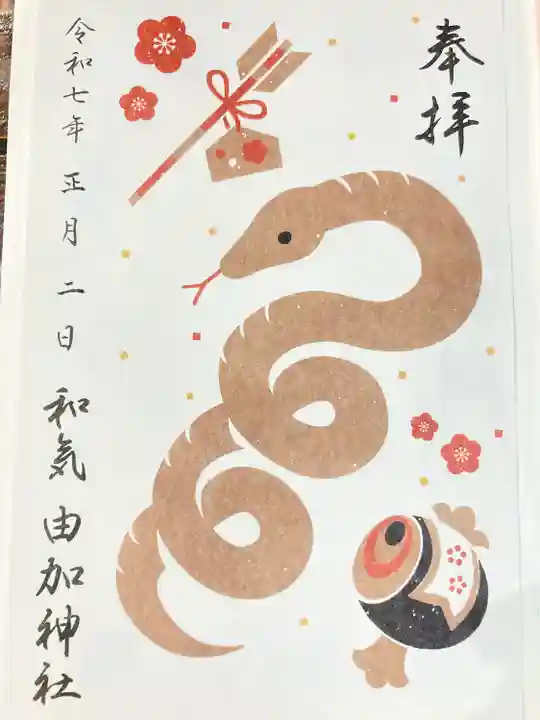 奉拝
令和七年 正月 二日
和気 由加神社